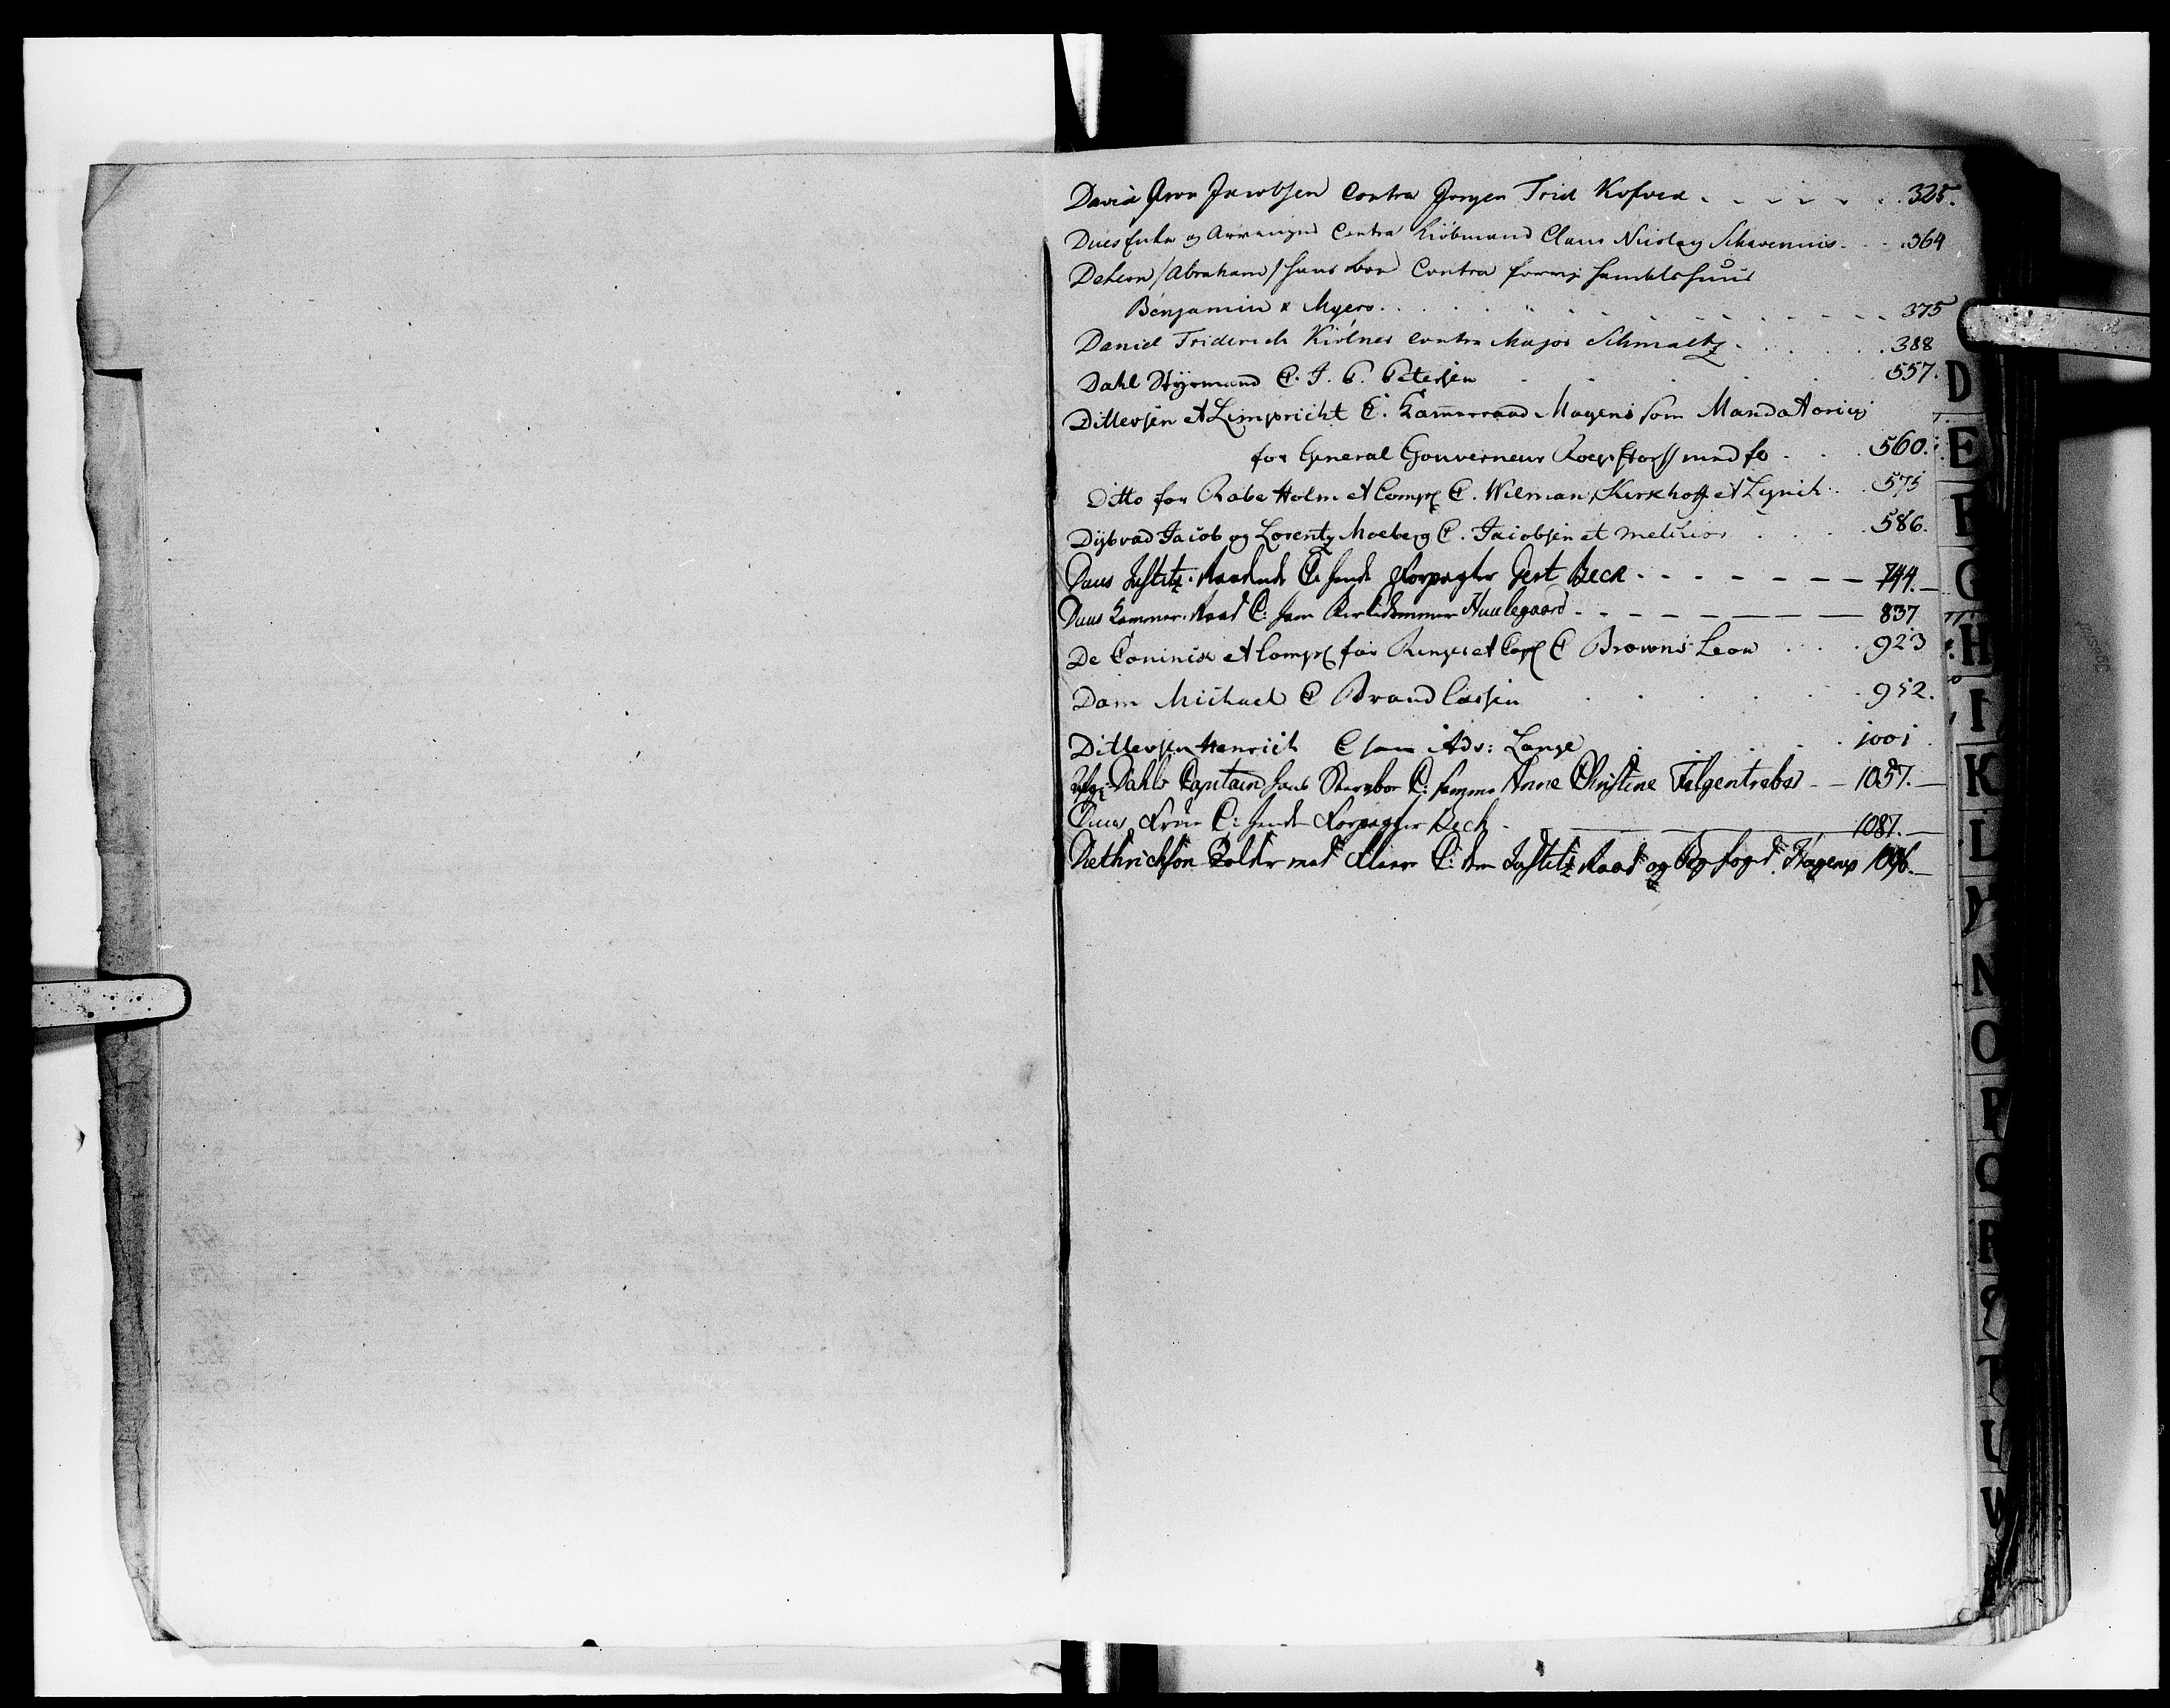 David Aron Jacobsen Contra Jørgen Frid Kofoed 325.
Dues Enke og Arvinger Contra Kiöbmand Claus Nicolay Schavenius 364
DeLeon /Abraham/ hans boe Contra forrige Handelshuus
Benjamin & Myers 375
Daniel Friderich Kiölner contra Major Schmaltz 388
Dahl Styrmand C. J. P. Petersen 557.
Ditlevsen et Limpricht C. Kammerraad Magens som Mandatarius
for General Gouverneur Roepstorff med fl 560.
Ditto for Rabe Holm et Comp C. Wilman, Kerkhoff et Lynch 575
Dysvad Jacob og Lorentz Moeberg C. Jacobsen et 586.
Daus Justitz-Raadinde C: hendes Forpagter Gert Beck 744.
Duus Kammer-Raad C: Huulegaard 837
De Coninck et Comp for et Comp C Browns Leon 923
Dam Michael C Brand Cassen 952.
Ditlevsen Henrich C ham Adv: Lange 1001
Dahls Capitain hans Sterboe C: Anne Christine Filgentrebes 1057.
Duus Frue C: hendes Forpagter Beck 1087.
Diethrichson med C: Justitz Raad og Byfoged Hagerup 1096.
D
E
F
G
H
I
K
L
M
N
O
P
Q
R
S
T
U
W